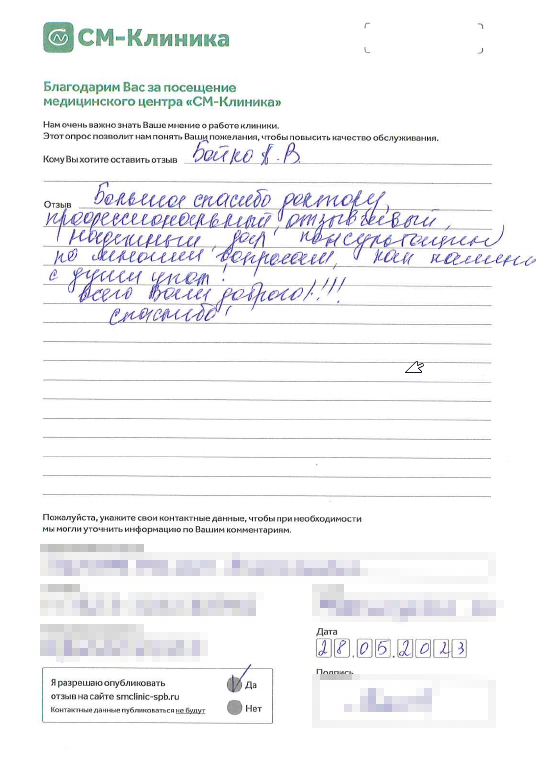 СМ-Клиника
Благодарим Вас за посещение
медицинского центра «СМ-Клиника»
Нам очень важно знать Ваше мнение о работе клиники.
Этот опрос позволит нам понять Ваши пожелания, чтобы повысить качество обслуживания.
Кому Вы хотите оставить отзыв Бойко А. В.
Отзыв Большое спасибо доктору,
профессиональный, отзывчивый,
надежный, дал консультацию
по многим вопросам, как камень
с души упал!
Всего Вам доброго!!!!
Спасибо!
Пожалуйста, укажите свои контактные данные, чтобы при необходимости
мы могли уточнить информацию по Вашим комментариям.
Дата
28.05.2023
Подпись
Я разрешаю опубликовать
отзыв на сайте smclinic-spb.ru
Контактные данные публиковаться не будут
Да
Нет